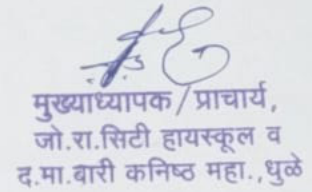 मुख्याध्यापक / प्राचार्य,
जो.रा.सिटी हायस्कूल व
द.मा.बारी कनिष्ठ महा.,धुळे